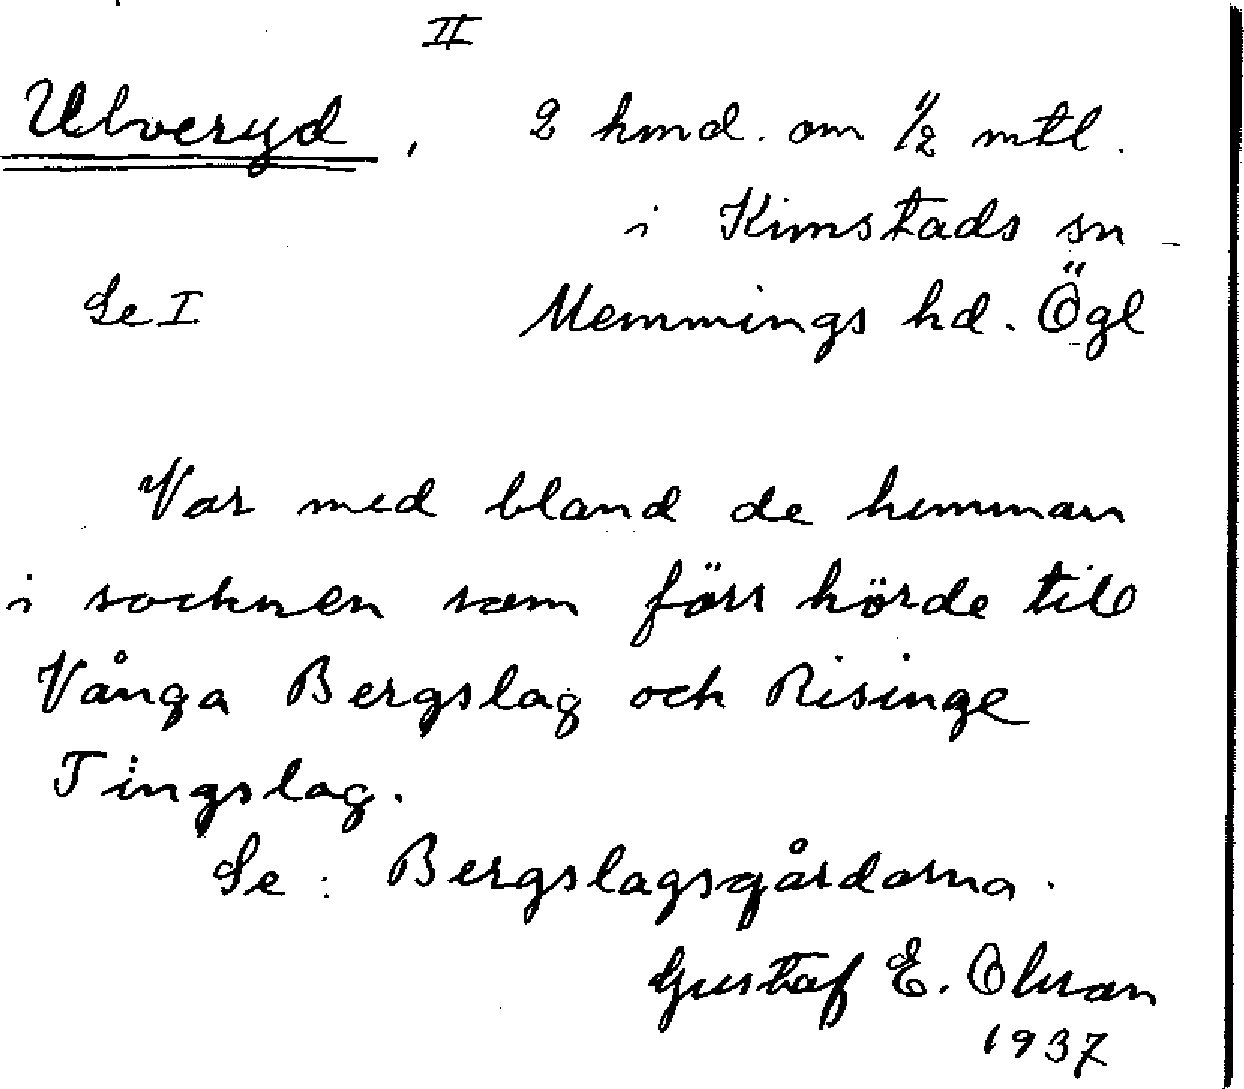 II
Ulveryd, 2 hmd. om 1/2 mtl.
i Kimstads sn
Se I Memmings hd. Ögl
Var med bland de hemman
i socknen som förr hörde till
Vånga Bergslag och Risinge
Tingslag.
Se: Bergslagsgårdarna.
Gustaf E. Olsson
1937